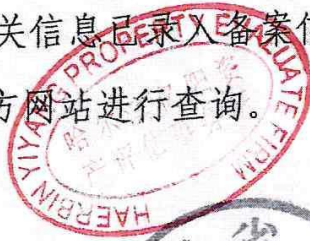 关信息已录入备案
方网站进行查询。
HAERBIN YIYANG PROPERTY EVALUATE FIRM
哈
省